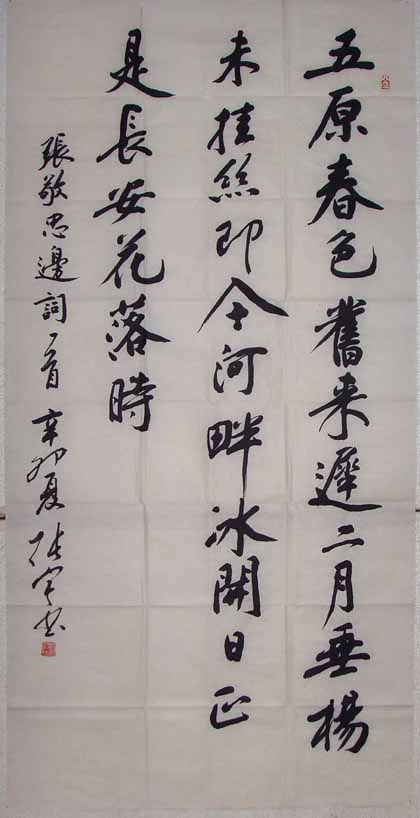 五原春色舊来遲二月垂楊
未挂絲即今河畔冰開日正
是長安花落時
張敬忠邊詞一首 辛卯夏 张宇书